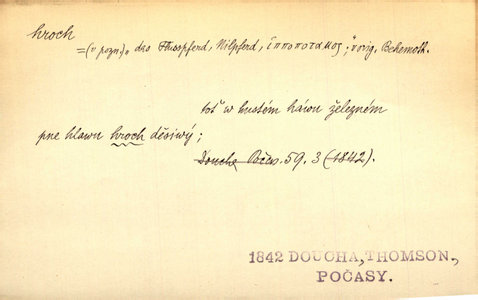 hroch
=(v pozn.) „das Flusspferd, Nilpferd, ἱπποποταμος; " v orig. Behemoth.
toť w hustém háwu železném
pne hlawu hroch děsiwý;
Doucha Počas. 59. 3 (1842).
1842 DOUCHA, THOMSON.,
POČASY.